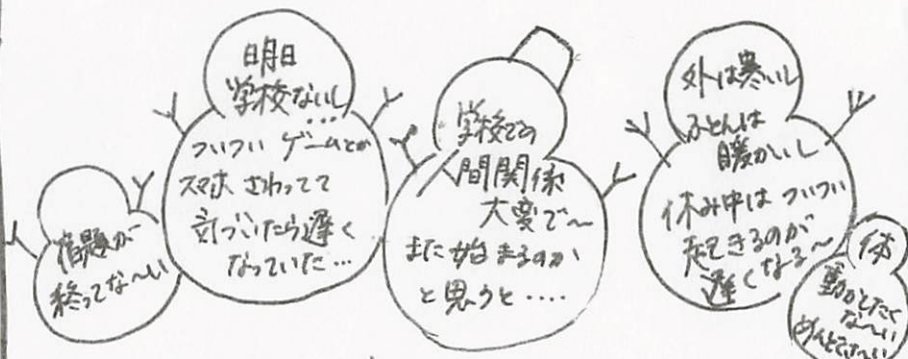 宿題が
終ってな〜い
明日
学校ないし
…
ついつい ゲームとか
スマホ さわってて
気づいたら遅く
なっていた…
学校での
人間関係
大変で〜
また始まるのか
と思うと‥‥
外は寒いし
ふとんは
暖かいし
休み中は ついつい
起きるのが
遅くなる〜
体
動かしたく
な〜い
めんどくさ〜い